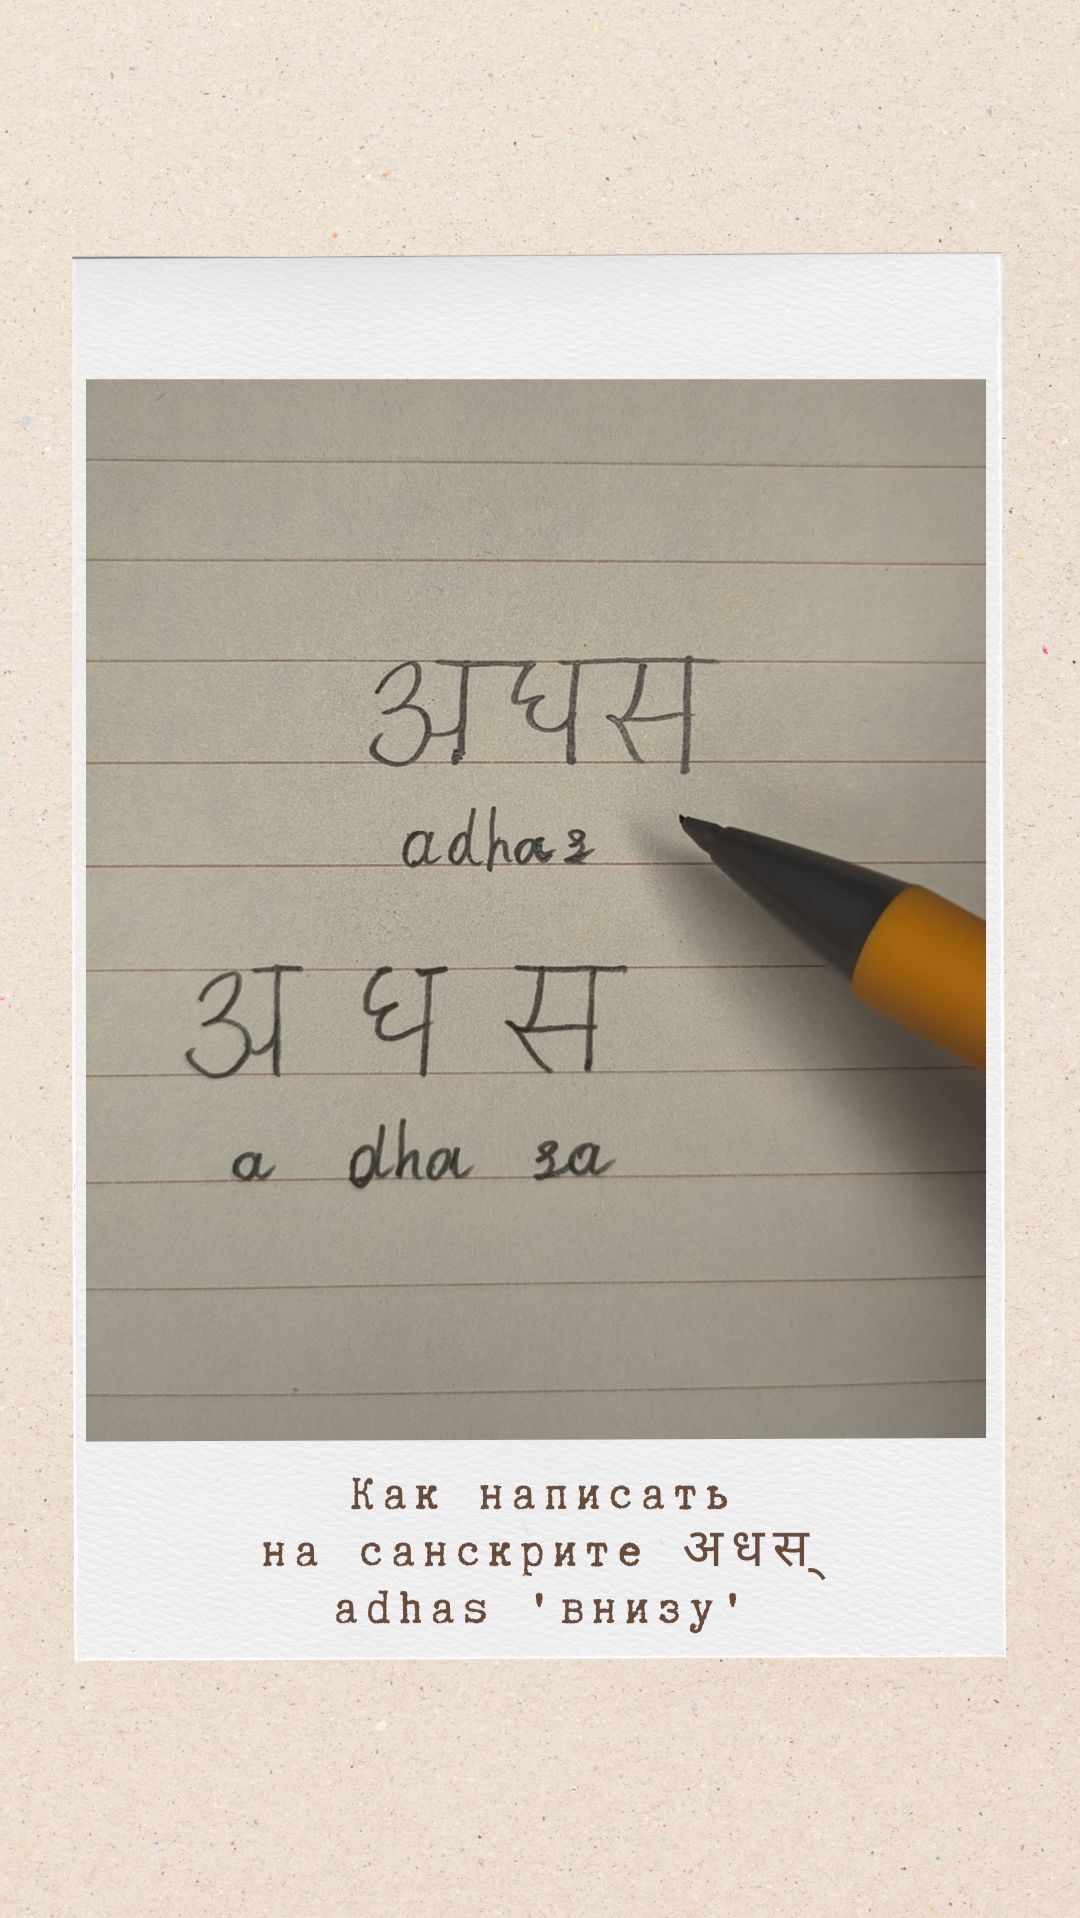 अधस
adhas
अ ध स
a dha sa
Как написать
на санскрите अधस्
adhas 'внизу'